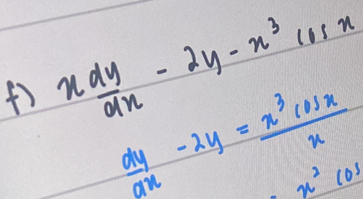 f) x dy/dx - 2y - x³ cos x
dy/dx - 2y = x³ cos x / x
x² cos